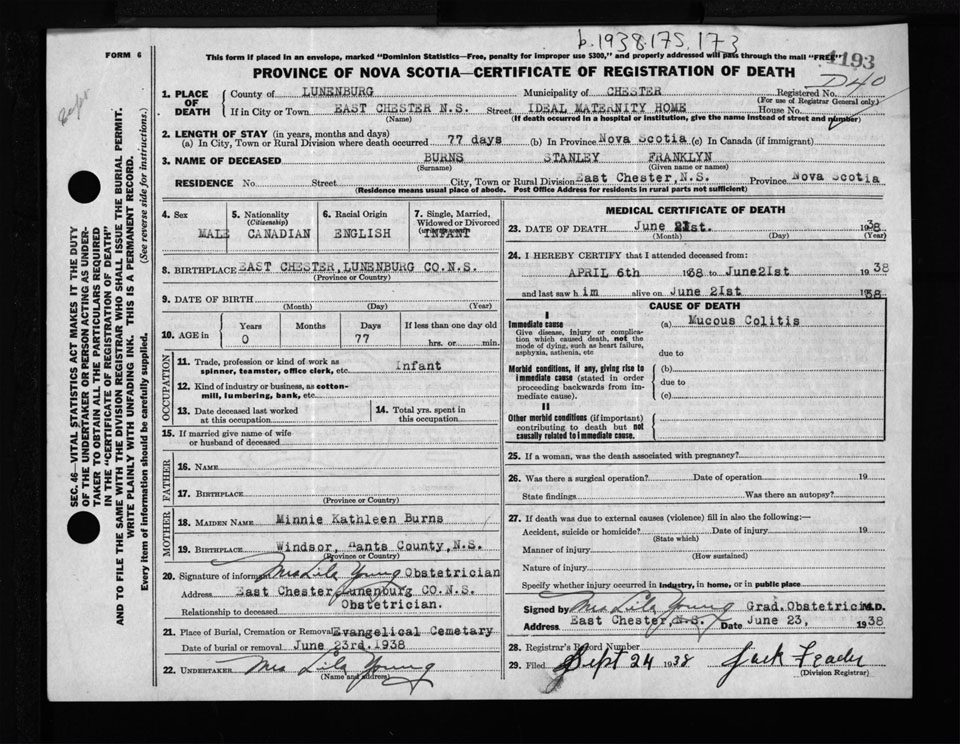 b.1938.175.173
FORM 6
This form if placed in an envelope, marked "Dominion Statistics—Free, penalty for improper use $300," and properly addressed will pass through the mail "FREE"
4193
PROVINCE OF NOVA SCOTIA—CERTIFICATE OF REGISTRATION OF DEATH
D40
1. PLACE OF DEATH
County of LUNENBURG Municipality of CHESTER Registered No.
(For use of Registrar General only)
If in City or Town EAST CHESTER N.S. Street IDEAL MATERNITY HOME House No.
(Name) (If death occurred in a hospital or institution, give the name instead of street and number)
2. LENGTH OF STAY (in years, months and days)
(a) In City, Town or Rural Division where death occurred 77 days (b) In Province Nova Scotia (c) In Canada (if immigrant)
3. NAME OF DECEASED BURNS STANLEY FRANKLYN
(Surname) (Given name or names)
RESIDENCE No. Street City, Town or Rural Division East Chester, N.S. Province Nova Scotia
(Residence means usual place of abode. Post Office Address for residents in rural parts not sufficient)
SEC. 46—VITAL STATISTICS ACT MAKES IT THE DUTY
OF THE UNDERTAKER OR PERSON ACTING AS UNDER-
TAKER TO OBTAIN ALL THE PARTICULARS REQUIRED
IN THE "CERTIFICATE OF REGISTRATION OF DEATH"
AND TO FILE THE SAME WITH THE DIVISION REGISTRAR WHO SHALL ISSUE THE BURIAL PERMIT.
WRITE PLAINLY WITH UNFADING INK. THIS IS A PERMANENT RECORD.
Every item of information should be carefully supplied. (See reverse side for instructions.)
4. Sex
MALE
5. Nationality
(Citizenship)
CANADIAN
6. Racial Origin
ENGLISH
7. Single, Married,
Widowed or Divorced
INFANT
8. BIRTHPLACE EAST CHESTER, LUNENBURG CO. N.S.
(Province or Country)
9. DATE OF BIRTH
(Month) (Day) (Year)
10. AGE in
Years Months Days If less than one day old
0 77 hrs. or min.
OCCUPATION
11. Trade, profession or kind of work as
spinner, teamster, office clerk, etc. Infant
12. Kind of industry or business, as cotton-
mill, lumbering, bank, etc.
13. Date deceased last worked
at this occupation
14. Total yrs. spent in
this occupation
15. If married give name of wife
or husband of deceased
FATHER
16. NAME
17. BIRTHPLACE
(Province or Country)
MOTHER
18. MAIDEN NAME Minnie Kathleen Burns
19. BIRTHPLACE Windsor, Hants County, N.S.
(Province or Country)
20. Signature of informant Mrs Lila Young Obstetrician
Address East Chester, Lunenburg CO. N.S.
Relationship to deceased Obstetrician.
21. Place of Burial, Cremation or Removal Evangelical Cemetary
Date of burial or removal June 23rd. 1938
22. UNDERTAKER Mrs Lila Young
(Name and address)
MEDICAL CERTIFICATE OF DEATH
23. DATE OF DEATH June 21st. 1938
(Month) (Day) (Year)
24. I HEREBY CERTIFY that I attended deceased from:
APRIL 6th 1938 to June 21st 1938
and last saw him alive on June 21st 1938
CAUSE OF DEATH
I
Immediate cause (a) Mucous Colitis
Give disease, injury or complica-
tion which caused death, not the
mode of dying, such as heart failure,
asphyxia, asthenia, etc due to
Morbid conditions, if any, giving rise to (b)
immediate cause (stated in order due to
proceeding backwards from im-
mediate cause). (c)
II
Other morbid conditions (if important)
contributing to death but not
causally related to immediate cause.
25. If a woman, was the death associated with pregnancy?
26. Was there a surgical operation? Date of operation 19
State findings Was there an autopsy?
27. If death was due to external causes (violence) fill in also the following:—
Accident, suicide or homicide? Date of injury 19
(State which)
Manner of injury
(How sustained)
Nature of injury
Specify whether injury occurred in industry, in home, or in public place
Signed by Mrs Lila Young Grad. Obstetrician M.D.
Address East Chester, N.S. Date June 23, 1938
28. Registrar's Record Number
29. Filed Sept 24 1938 Jack Feader
(Division Registrar)